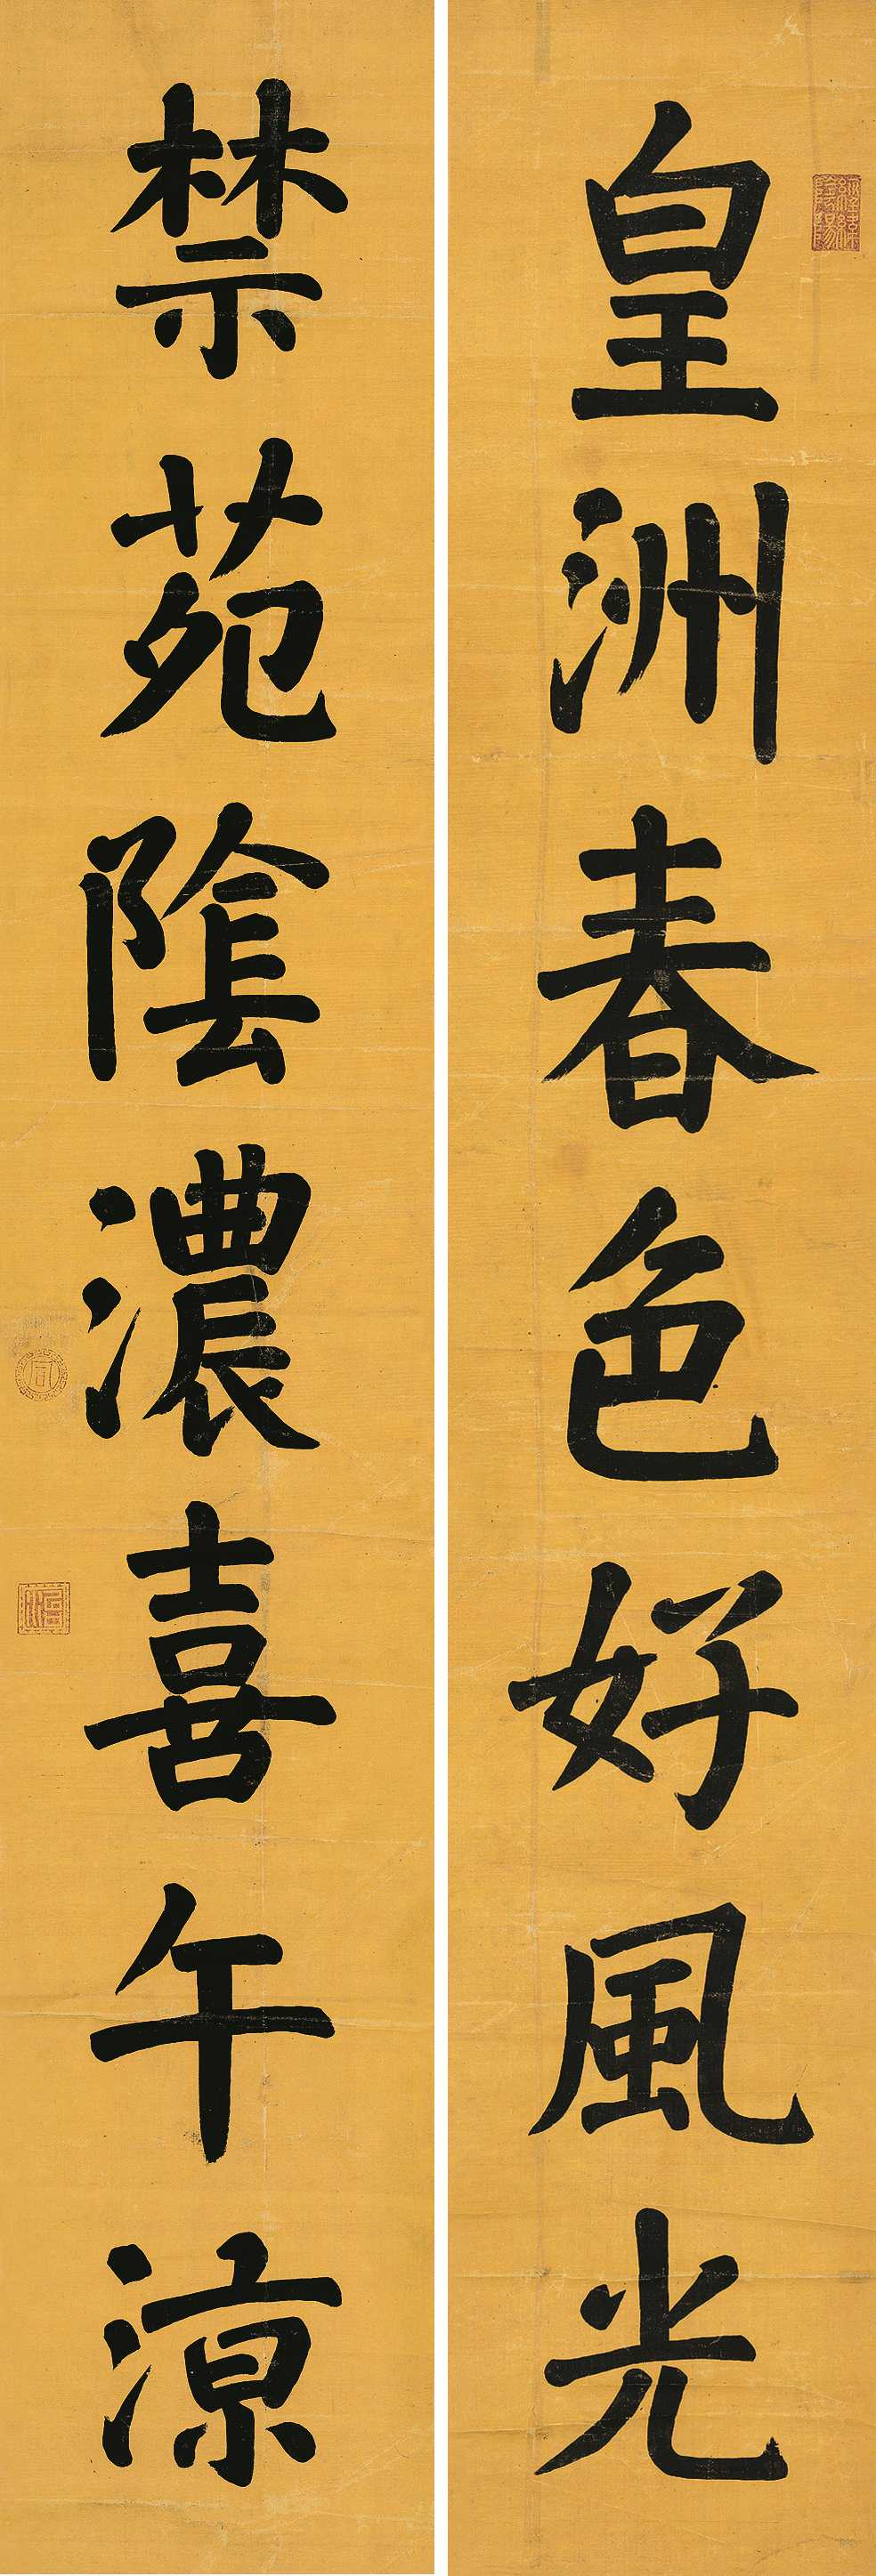 皇洲春色好風光
禁苑陰濃喜午涼